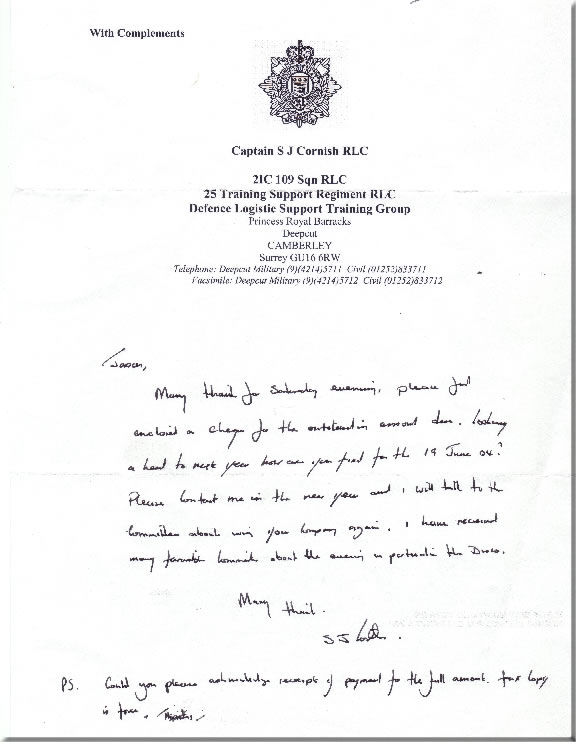 With Complements
Captain S J Cornish RLC
2IC 109 Sqn RLC
25 Training Support Regiment RLC
Defence Logistic Support Training Group
Princess Royal Barracks
Deepcut
CAMBERLEY
Surrey GU16 6RW
Telephone: Deepcut Military (9)(4214)5711 Civil (01252)833711
Facsimile: Deepcut Military (9)(4214)5712 Civil (01252)833712
Many thanks for Saturday evening, please find
enclosed a cheque for the outstanding amount due. Looking
a head to next year how are you fixed for the 19 June 04?
Please contact me in the new year and I will talk to the
Committee about using your company again. I have received
many favourable comments about the evening in particular the Disco.
Many thanks.
S J
PS. Could you please acknowledge receipt of payment for the full amount. fax copy
is fine. Thanks